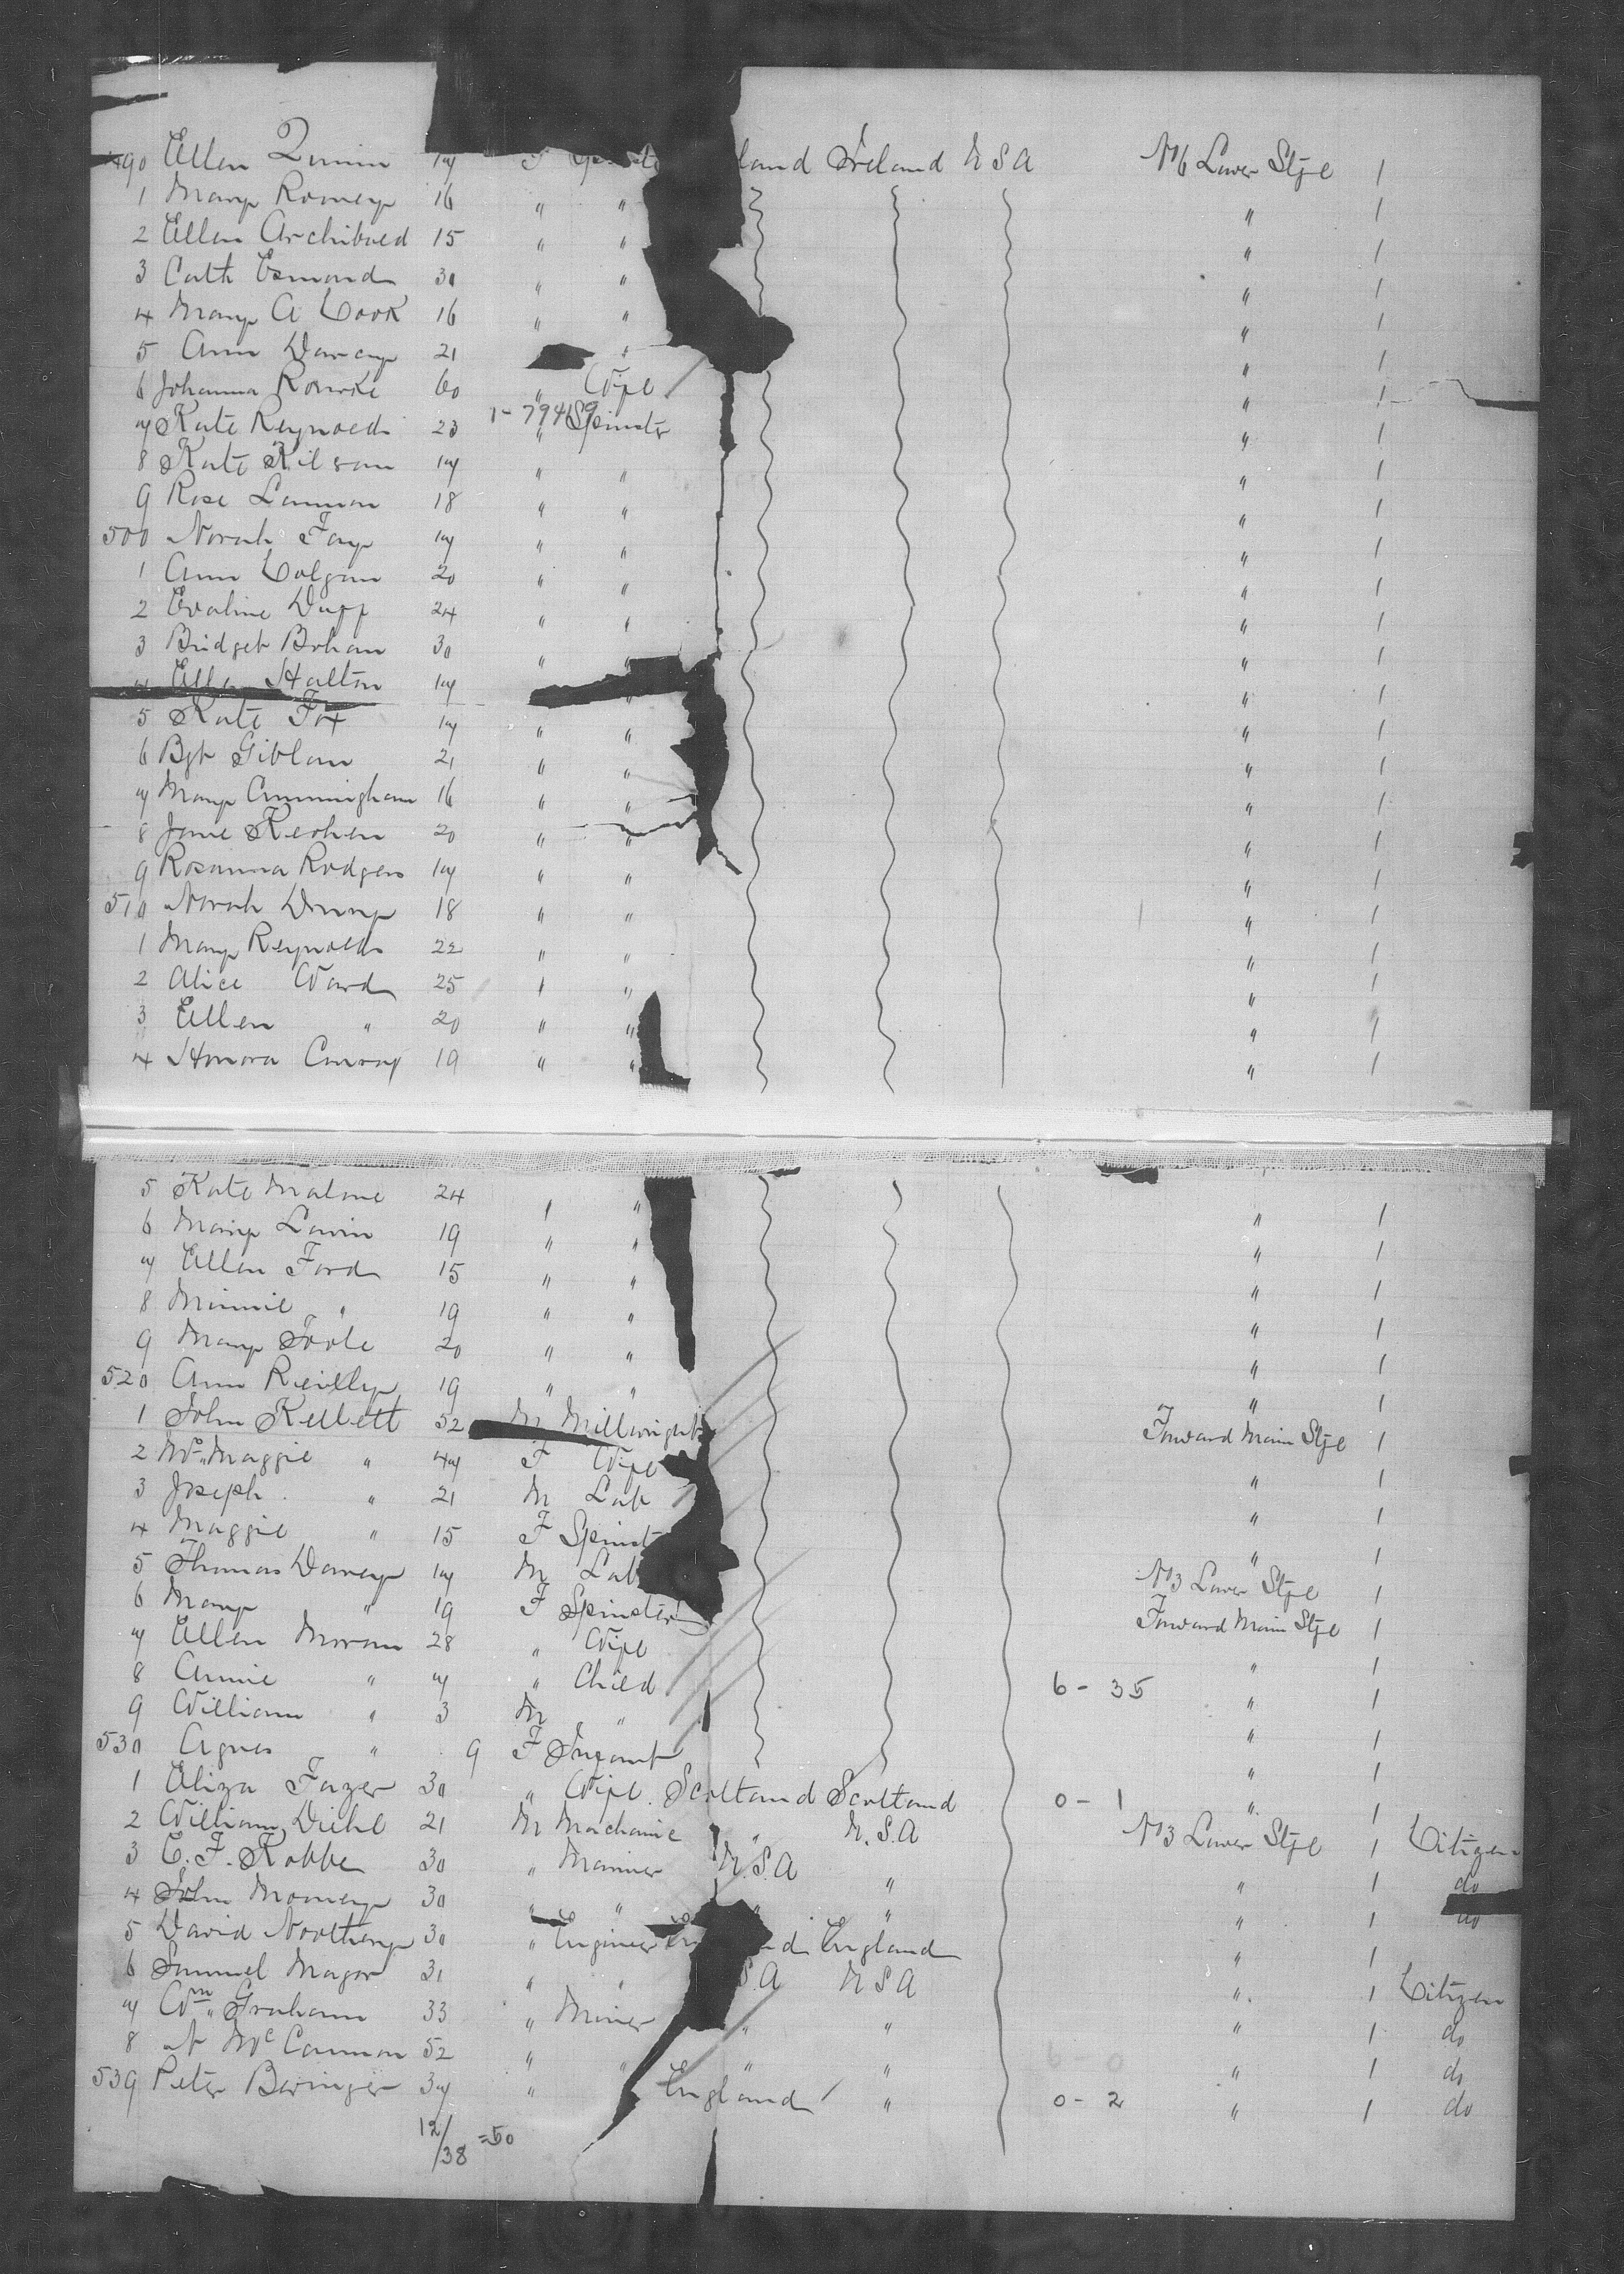 490 Ellen Quinn 17 F Spinste land Ireland U S A No 6 Lower Stge 1
1 Mary Romery 16 " " " 1
2 Ellen Archibald 15 " " " 1
3 Cath Esmond 30 " " " 1
4 Mary A Cook 16 " " " 1
5 Ann Darcy 21 " " 1
6 Johanna Rourke 60 " Wife " 1
7 Kate Reynolds 23 1-79459 " Spinster " 1
8 Kate Kilroan 17 " " " 1
9 Rose Lannon 18 " " " 1
500 Norah Fay 17 " " " 1
1 Ann Colgan 20 " " " 1
2 Evaline Duff 24 " " " 1
3 Bridget Bohan 30 " " " 1
4 Ellen Halton 17 " " 1
5 Kate Fox 17 " " " 1
6 Bgt Giblan 21 " " " 1
7 Mary Cunningham 16 " " " 1
8 Jane Keohen 20 " " " 1
9 Rosanna Rodgers 17 " " " 1
510 Norah 18 " " " 1
1 Mary Reynolds 22 " " " 1
2 Alice Ward 25 " " " 1
3 Ellen " 20 " " " 1
4 Honora Conroy 19 " " " 1
5 Kate Malone 24 " " " 1
6 Mary Lavin 19 " " " 1
7 Ellen Ford 15 " " " 1
8 Minnie " 19 " " " 1
9 Mary Toole 20 " " " 1
520 Ann Reilly 19 " " " 1
1 John Kellett 52 M Millwright Forward Main Stge 1
2 Mrs Maggie " 47 F Wife " 1
3 Joseph " 21 M Lab " 1
4 Maggie " 15 F Spinst " 1
5 Thomas Darcy 17 M Lab No 3 Lower Stge 1
6 Mary " 19 F Spinster Forward Main Stge 1
7 Ellen Moran 28 " Wife " 1
8 Annie " 7 " Child 6-35 " 1
9 William " 3 M " " 1
530 Agnes " 9 F Infant " 1
1 Eliza Fazer 30 " Wife Scotland Scotland 0-1 " 1
2 William Diehl 21 M Machanic " U.S.A No 3 Lower Stge 1 Citizen
3 C. F. Robbe 30 " Mariner U.S.A " " 1 do
4 John Momery 30 " " " " " 1 do
5 David Northey 30 " Engineer En nd England " 1
6 Samuel Magor 31 " " S.A U S A " 1 Citizen
7 Wm Graham 33 " Miner " " " 1 do
8 A McCannon 52 " " " " 6-0 " 1 do
539 Peter Baringer 37 " England " 0-2 " 1 do
12/38 =50